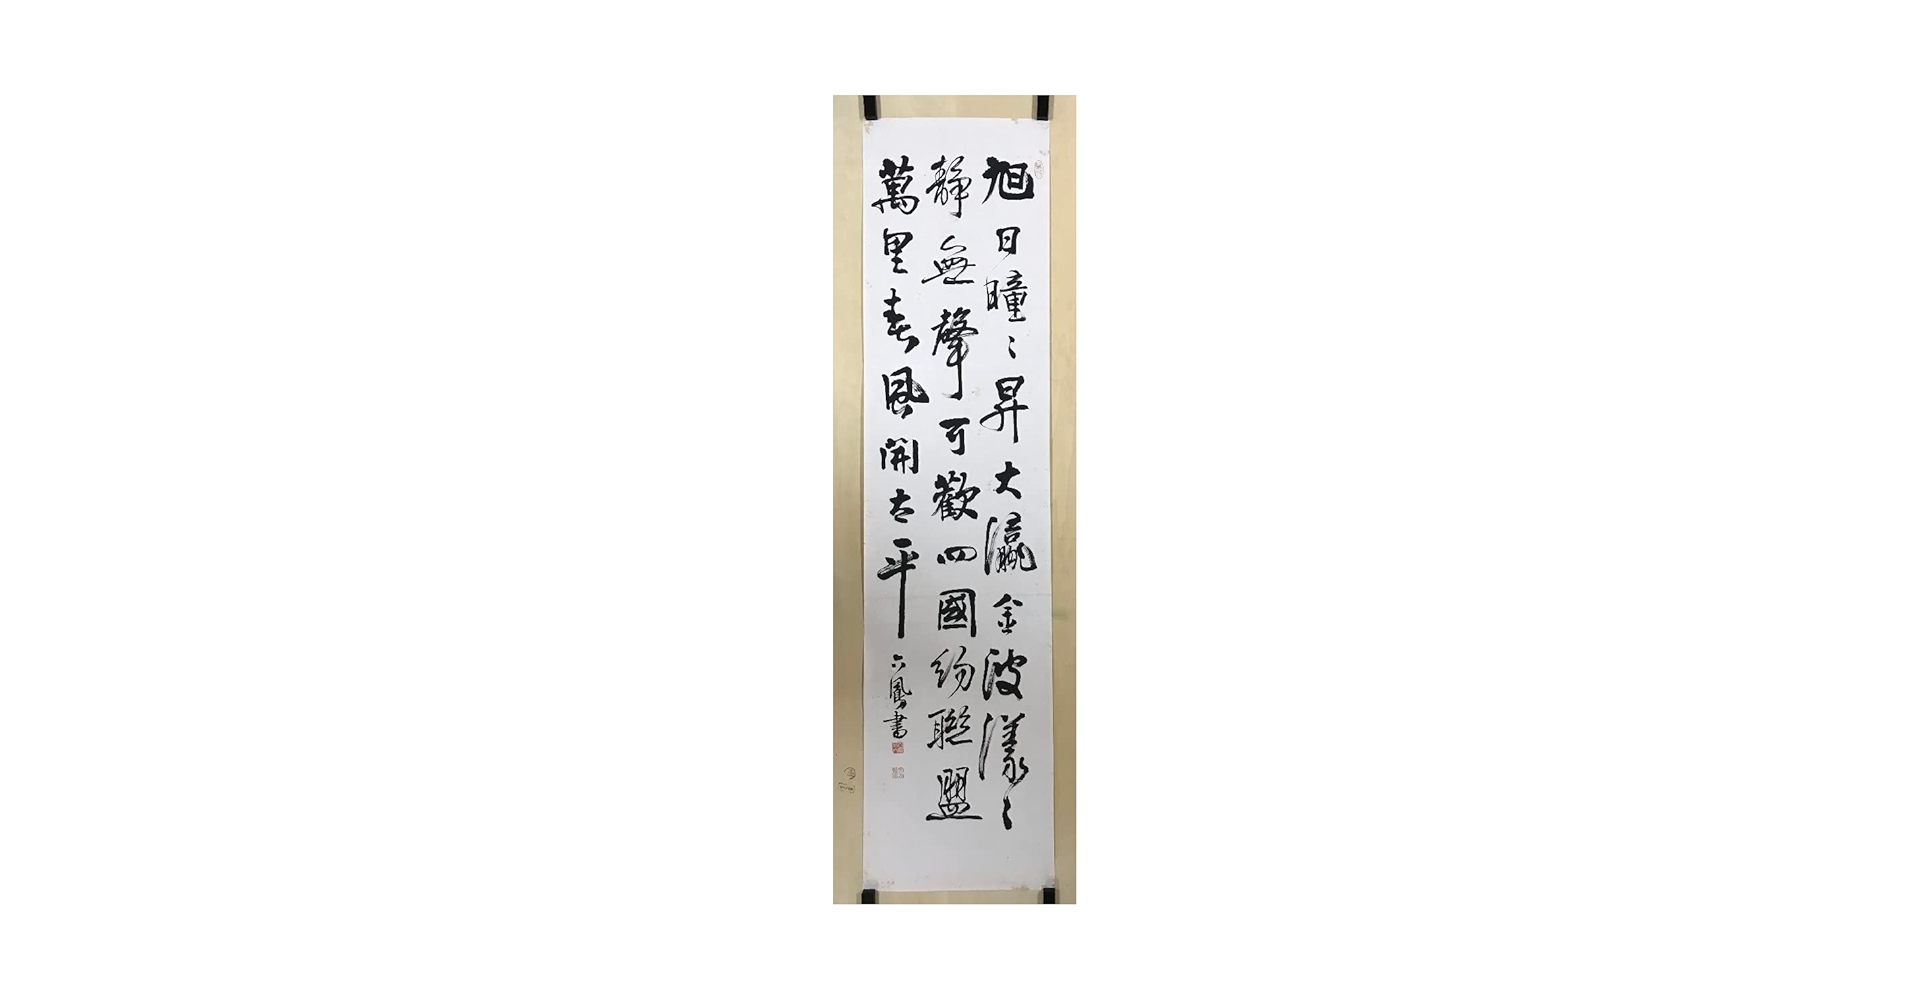 旭日瞳〻昇大瀛金波漾〻
靜無聲可歡四國紛聯盟
萬里春風開太平
六鳳書